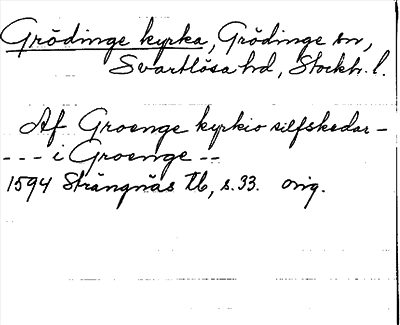 Grödinge kyrka, Grödinge sn,
Svartlösa hd, Stockh. l.
Af Groenge kyrkio silfskedar -
- - - i Groenge - -
1594 Strängnäs tb, s. 33. orig.